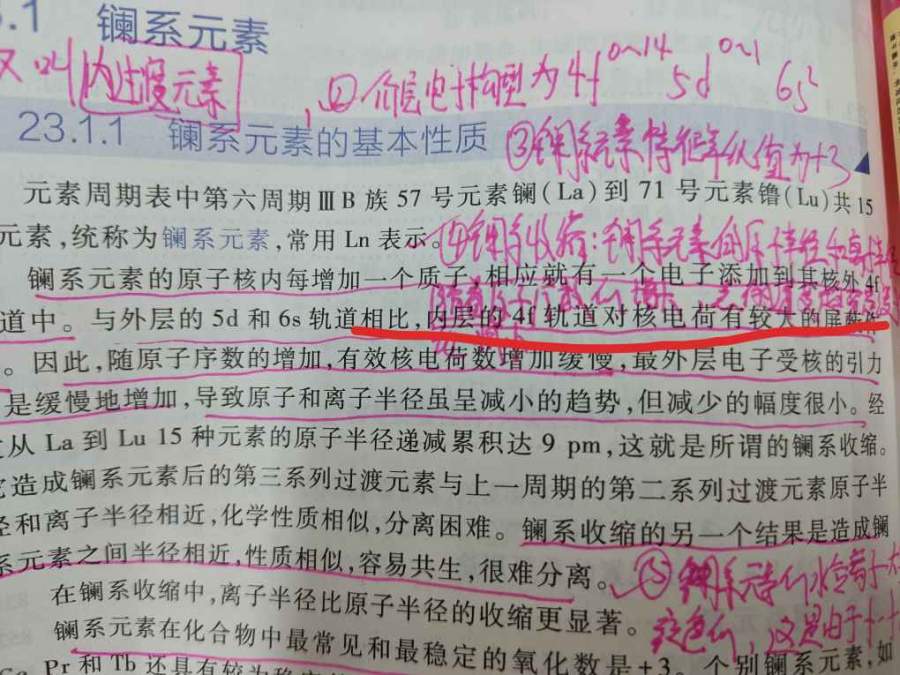 .1 镧系元素
又叫内过渡元素
,② 价层电子构型为4f0~14 5d0~1 6s2
23.1.1 镧系元素的基本性质
③镧系元素特征氧化值为+3
元素周期表中第六周期ⅢB族57号元素镧(La)到71号元素镥(Lu)共15
元素,统称为镧系元素,常用Ln表示。
④镧系收缩:镧系元素的原子半径和离子半径
镧系元素的原子核内每增加一个质子,相应就有一个电子添加到其核外4f
道中。与外层的5d和6s轨道相比,内层的4f轨道对核电荷有较大的屏蔽作
。因此,随原子序数的增加,有效核电荷数增加缓慢,最外层电子受核的引力
是缓慢地增加,导致原子和离子半径虽呈减小的趋势,但减少的幅度很小。经
从La到Lu 15种元素的原子半径递减累积达9 pm,这就是所谓的镧系收缩。
它造成镧系元素后的第三系列过渡元素与上一周期的第二系列过渡元素原子半
径和离子半径相近,化学性质相似,分离困难。镧系收缩的另一个结果是造成镧
系元素之间半径相近,性质相似,容易共生,很难分离。
⑤镧系元素的水合离子大
在镧系收缩中,离子半径比原子半径的收缩更显著。
,这是由于f-f
镧系元素在化合物中最常见和最稳定的氧化数是+3。个别镧系元素,如
Pr和Tb还具有较为稳定